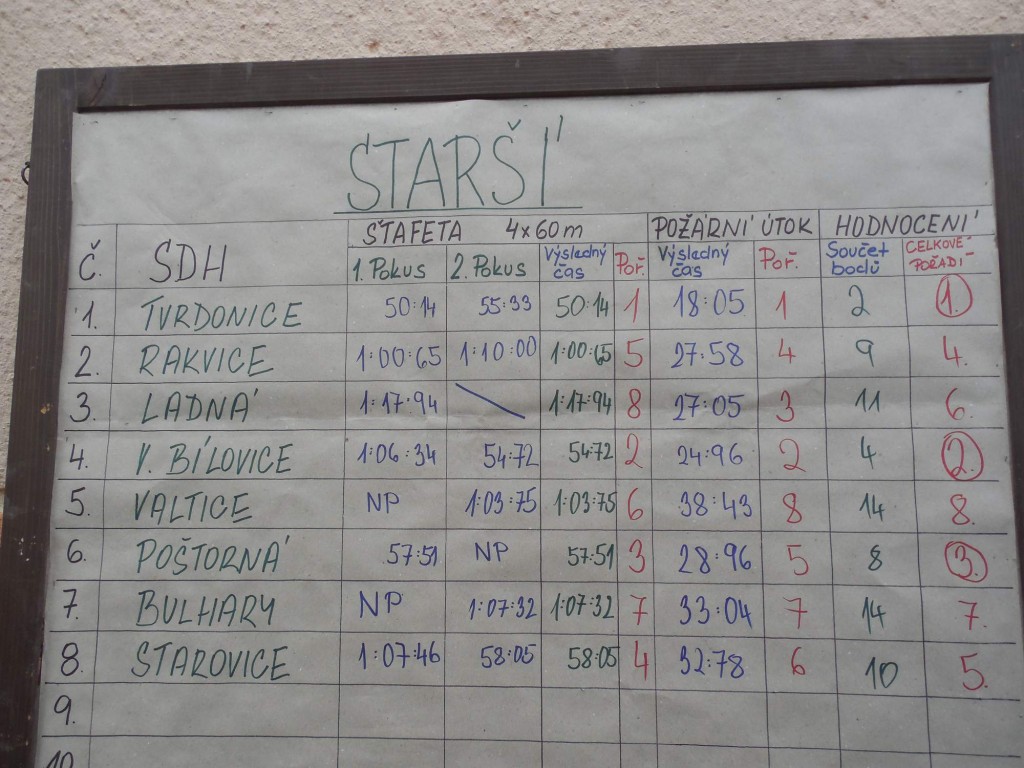 STARŠÍ
ŠTAFETA 4x60m POŽÁRNÍ ÚTOK HODNOCENÍ
Č. SDH 1. POKUS 2. POKUS Výsledný čas Poř. Výsledný čas Poř. Součet bodů CELKOVÉ POŘADÍ
1. TVRDONICE 50:14 55:33 50:14 1 18:05 1 2 1.
2. RAKVICE 1:00:65 1:10:00 1:00:65 5 27:58 4 9 4.
3. LADNÁ 1:17:94 1:17:94 8 27:05 3 11 6.
4. V. BÍLOVICE 1:06:34 54:72 54:72 2 24:96 2 4 2.
5. VALTICE NP 1:03:75 1:03:75 6 38:43 8 14 8.
6. POŠTORNÁ 57:51 NP 57:51 3 28:96 5 8 3.
7. BULHARY NP 1:07:32 1:07:32 7 33:04 7 14 7.
8. STAROVICE 1:07:46 58:05 58:05 4 32:78 6 10 5.
9.
10.